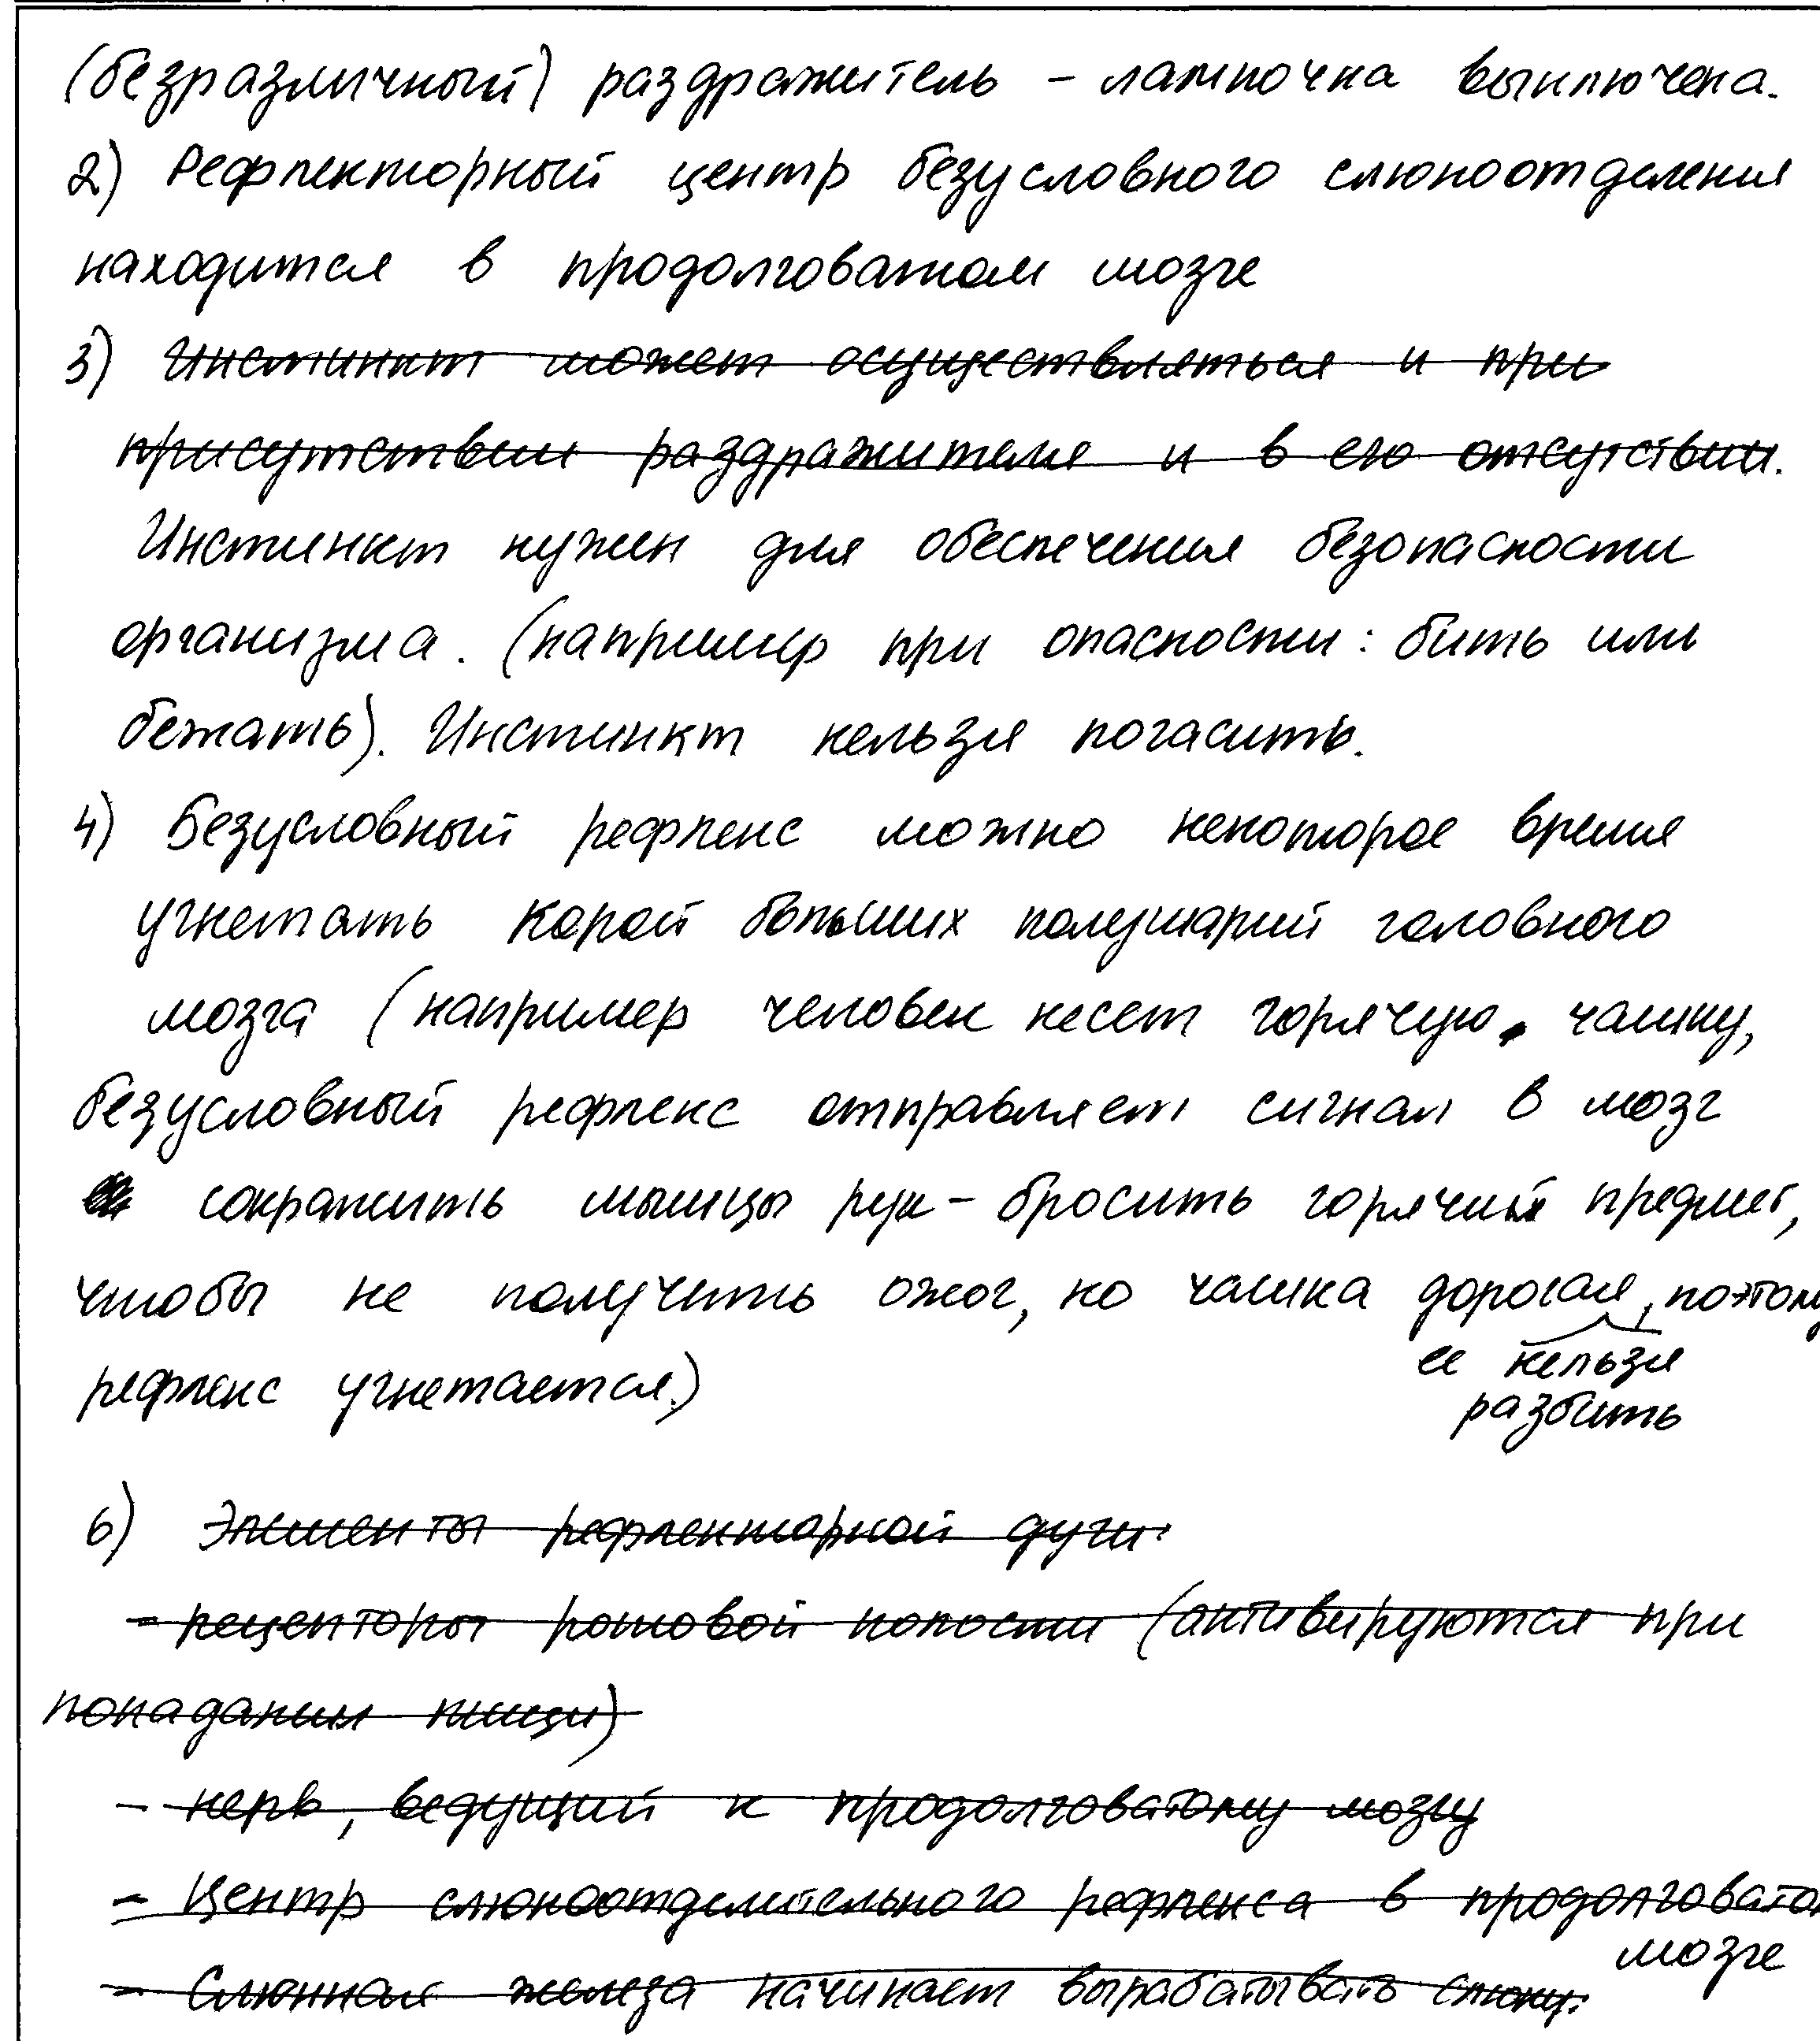 (безразличный) раздражитель - лампочка выключена.
2) Рефлекторный центр безусловного слюноотделения
находится в продолговатом мозге
3) Инстинкт может осуществляться и при
присутствии раздражителя и в его отсутствии.
Инстинкт нужен для обеспечения безопасности
организма. (например при опасности: бить или
бежать). Инстинкт нельзя погасить.
4) Безусловный рефлекс можно некоторое время
угнетать корой больших полушарий головного
мозга (например человек несет горячую чашку,
безусловный рефлекс отправляет сигнал в мозг
сократить мышцы рук - бросить горячий предмет,
чтобы не получить ожог, но чашка дорогая, поэтому
ее нельзя
рефлекс угнетается.)
разбить
6) Элементы рефлекторной дуги:
- рецепторы ротовой полости (активируются при
попадании пищи)
- нерв, ведущий к продолговатому мозгу
- Центр слюноотделительного рефлекса в продолговатом
мозге
- Слюнная железа начинает вырабатывать слюну.